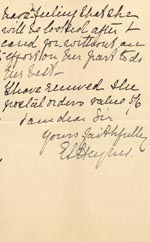 have feeling that she
will be looked after &
cared for without an
effort on her part to do
her best.
I have received the
postal orders value 5/6
I am dear Sir
Yours faithfully